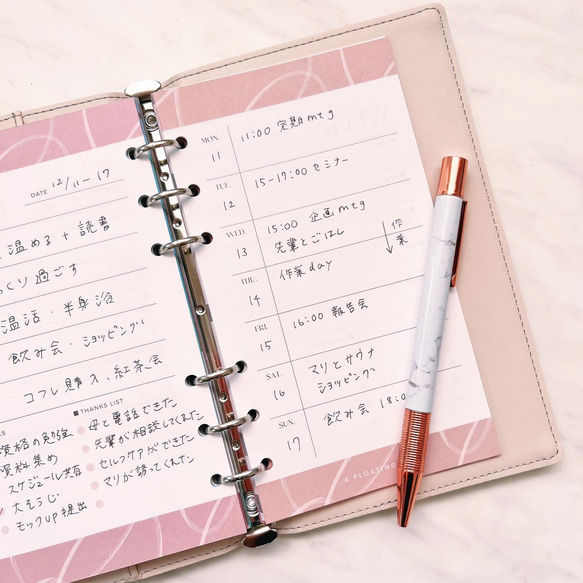 DATE 12/11-17
温める + 読書
くり過ごす
温活・半身浴
飲み会・ショッピング
コフレ購入、紅茶会
資格の勉強
資料集め
スケジュール共有
大そうじ
モックup提出
■THANKS LIST
母と電話できた
先輩が相談してくれた
セルフケアができた
マリが誘ってくれた
MON.
11
11:00 定期mtg
TUE.
12
15-17:00 セミナー
WED.
13
15:00 企画mtg
先輩とごはん
作業
THU.
14
作業day
FRI.
15
16:00 報告会
SAT.
16
マリとサウナ
ショッピング
SUN.
17
飲み会 18:0
A FLOATING